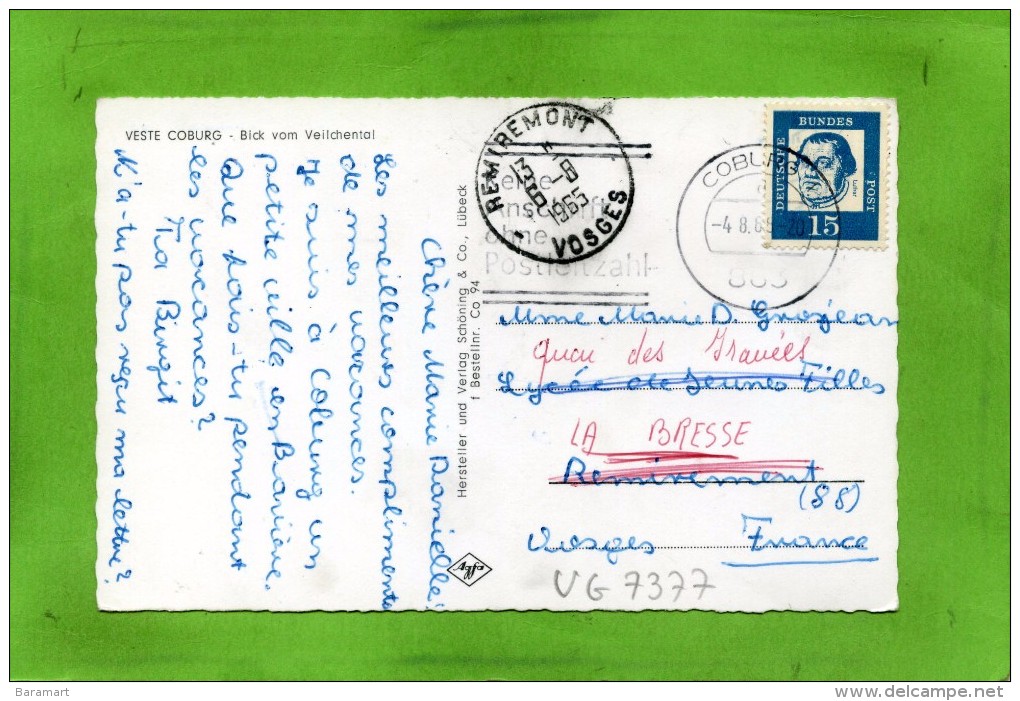 VESTE COBURG - Bick vom Veilchental
Chère Marie Danielle!
Les meilleures compliments
de mes vacances.
Je suis à Coburg un
petite ville en Bavière.
Que fais-tu pendant
les vacances?
Ta Birgit
N'a-tu pas reçu ma lettre?
Hersteller und Verlag Schöning & Co., Lübeck
Bestellnr. Co 94
Agfa
REMIREMONT
1965
VOSGES
Anschrift
ohne
Postleitzahl
COBURG
-4.8.65-20
863
DEUTSCHE BUNDES POST
Luther
15
Mme Marie D. Grosjean
Quai des Iranées
Lycée de Jeunes Filles
LA BRESSE
Remiremont
(88)
Vosges France
VG 7377
Baramart
http://www.delcampe.net